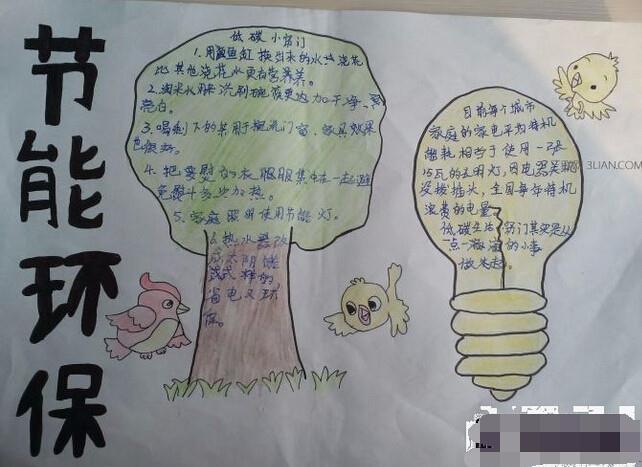 节能环保
低碳小窍门
1.用鱼缸换出来的水浇花
比其他浇花水更有营养。
2.淘米水用来洗刷碗筷更加干净、
亮白。
3.喝剩下的茶用于擦洗门窗、家具效果
也很好。
4.把要熨的衣服集中在一起避
免熨斗多次加热。
5.家庭照明使用节能灯。
6.热水器改
成太阳能
式样的
省电又环
保。
目前每个城市
家庭的家电平均待机
能耗相当于使用一张
15瓦的长明灯,因电器关
没拔插头,全国每年待机
浪费的电量
低碳生活窍门其实是从
一点一滴的小事
做起。
3LIAN.COM